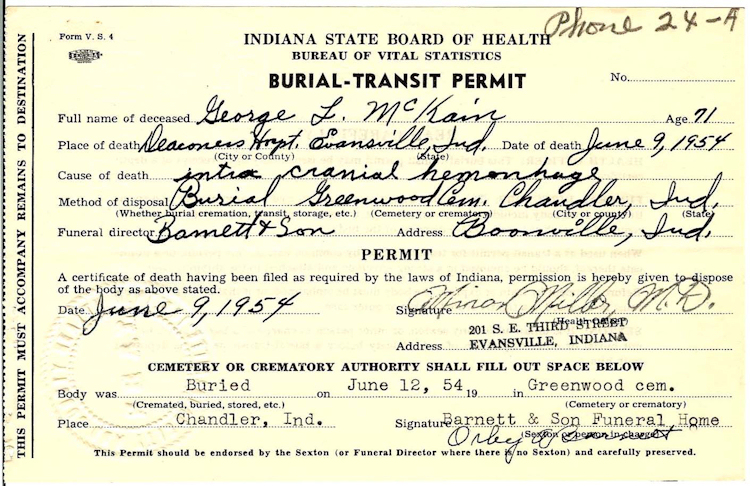 Phone 24-A
Form V. S. 4
INDIANA STATE BOARD OF HEALTH
BUREAU OF VITAL STATISTICS
BURIAL-TRANSIT PERMIT
No.
Full name of deceased George L. McKain Age 71
Place of death Deaconess Hospt. Evansville, Ind. Date of death June 9, 1954
(City or County) (State)
Cause of death intra cranial hemorrhage
Method of disposal Burial Greenwood Cem. Chandler, Ind.
(Whether burial cremation, transit, storage, etc.) (Cemetery or crematory) (City or county) (State)
Funeral director Barnett & Son Address Boonville, Ind.
PERMIT
A certificate of death having been filed as required by the laws of Indiana, permission is hereby given to dispose
of the body as above stated.
Date June 9, 1954 Signature Minor Miller, M.D.
Health Officer
201 S. E. THIRD STREET
Address EVANSVILLE, INDIANA
CEMETERY OR CREMATORY AUTHORITY SHALL FILL OUT SPACE BELOW
Body was Buried on June 12, 54 19 in Greenwood cem.
(Cremated, buried, stored, etc.) (Cemetery or crematory)
Place Chandler, Ind. Signature Barnett & Son Funeral Home
(Sexton or person in charge)
This Permit should be endorsed by the Sexton (or Funeral Director where there is no Sexton) and carefully preserved.
THIS PERMIT MUST ACCOMPANY REMAINS TO DESTINATION